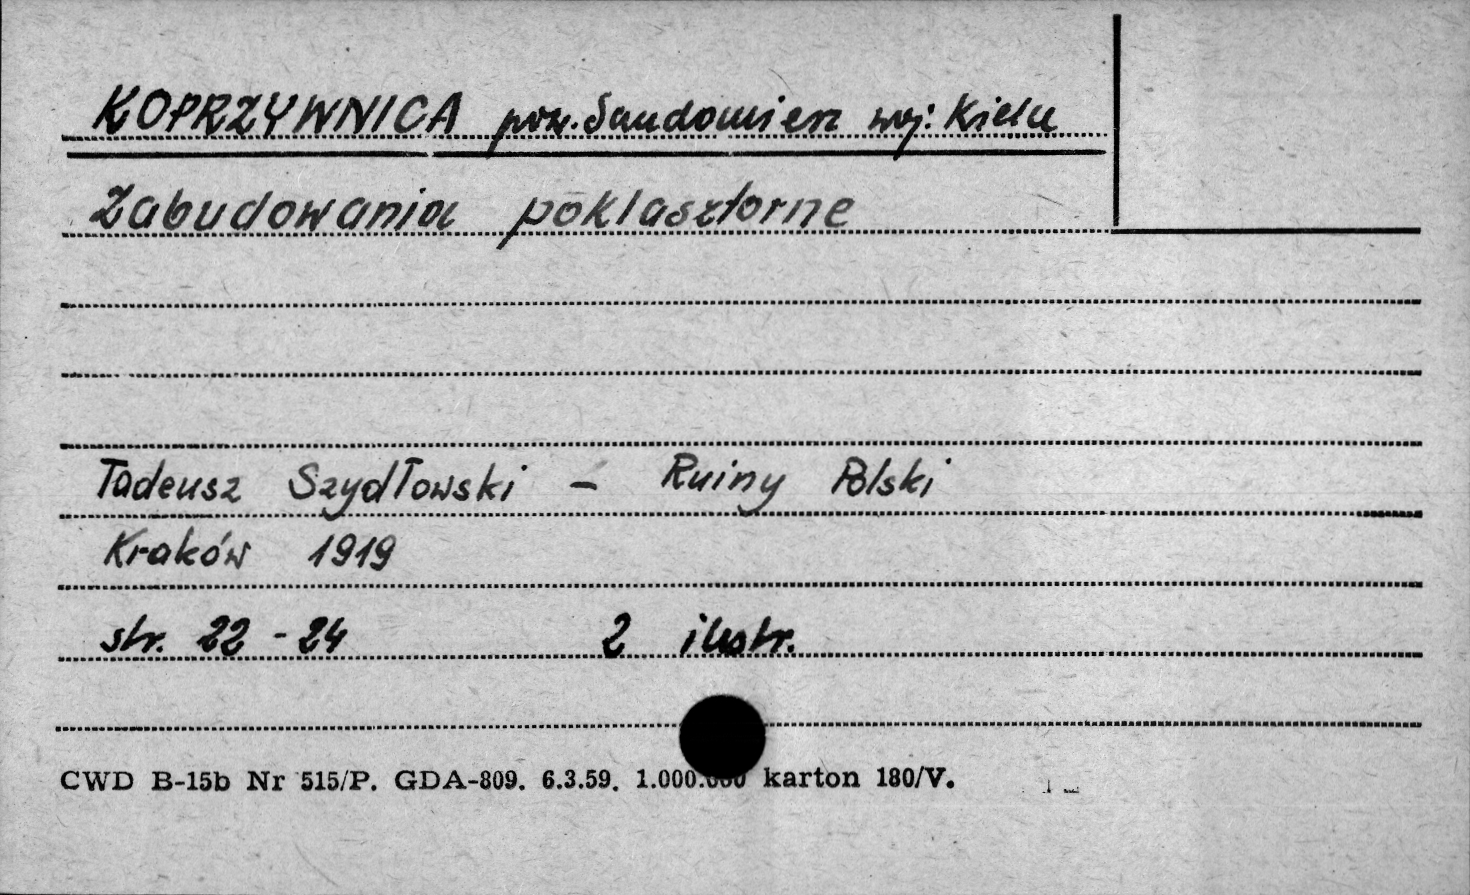 KOPRZYWNICA pow. Sandomierz woj. Kielce
Zabudowania poklasztorne
Tadeusz Szydłowski – Ruiny Polski
Kraków 1919
str. 22 - 24 2 ilustr.
CWD B-15b Nr 515/P. GDA-809. 6.3.59. 1.000.000 karton 180/V.